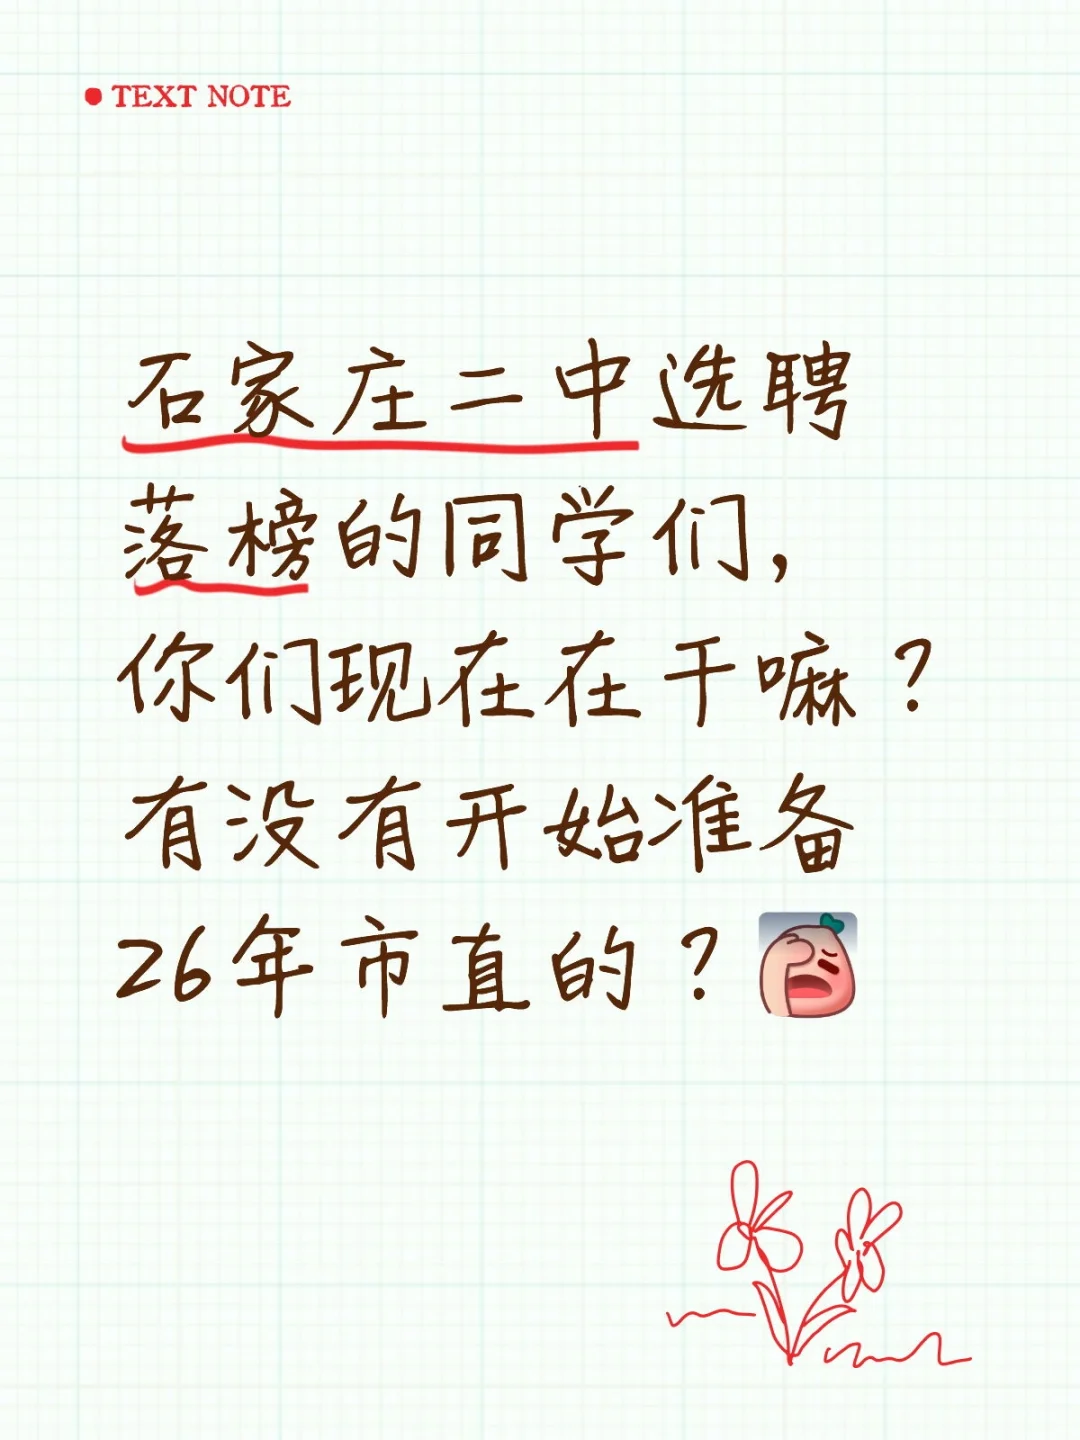 TEXT NOTE
石家庄二中选聘
落榜的同学们，
你们现在在干嘛？
有没有开始准备
26年市直的？